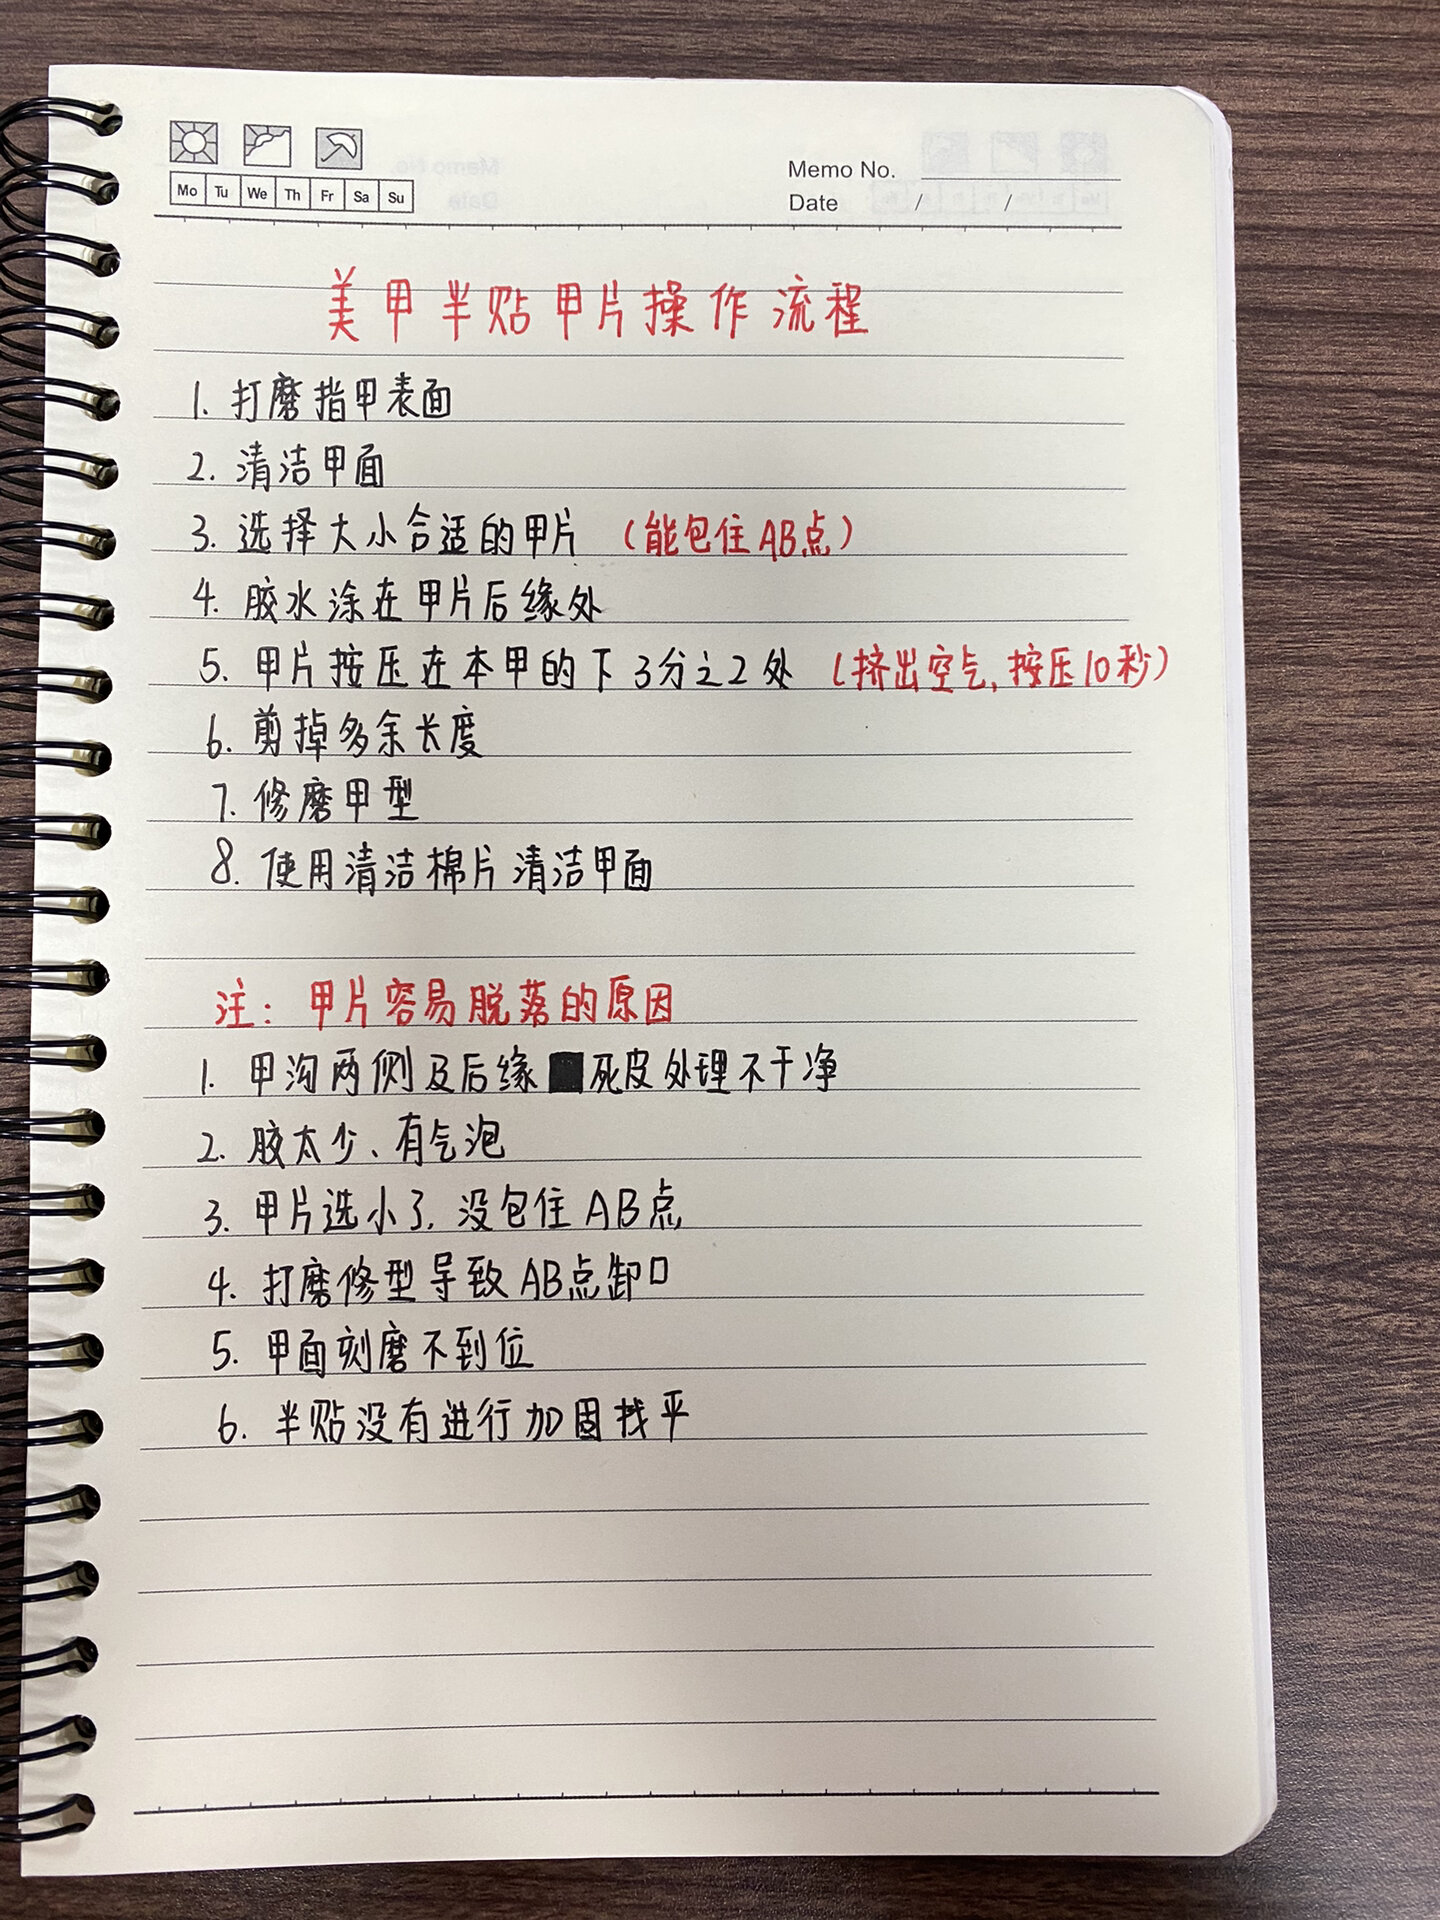 Mo Tu We Th Fr Sa Su
Memo No.
Date / /
美甲半贴甲片操作流程
1. 打磨指甲表面
2. 清洁甲面
3. 选择大小合适的甲片 (能包住AB点)
4. 胶水涂在甲片后缘处
5. 甲片按压在本甲的下3分之2处 (挤出空气、按压10秒)
6. 剪掉多余长度
7. 修磨甲型
8. 使用清洁棉片清洁甲面
注: 甲片容易脱落的原因
1. 甲沟两侧及后缘死皮处理不干净
2. 胶太少、有气泡
3. 甲片选小了, 没包住AB点
4. 打磨修型导致AB点卸口
5. 甲面刻磨不到位
6. 半贴没有进行加固找平